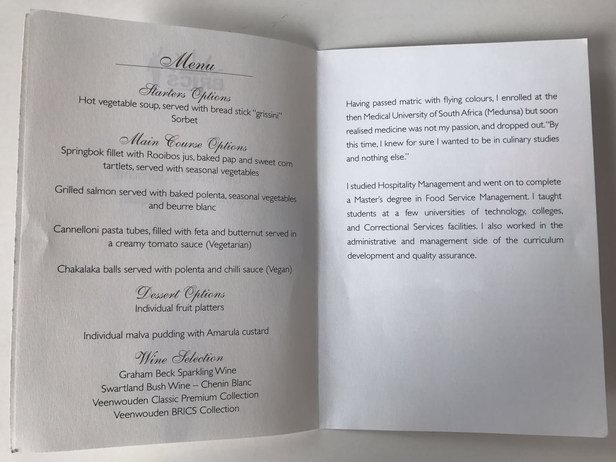 Menu
Starters Options
Hot vegetable soup, served with bread stick "grissini"
Sorbet
Main Course Options
Springbok fillet with Rooibos jus, baked pap and sweet corn
tartlets, served with seasonal vegetables
Grilled salmon served with baked polenta, seasonal vegetables
and beurre blanc
Cannelloni pasta tubes, filled with feta and butternut served in
a creamy tomato sauce (Vegetarian)
Chakalaka balls served with polenta and chilli sauce (Vegan)
Dessert Options
Individual fruit platters
Individual malva pudding with Amarula custard
Wine Selection
Graham Beck Sparkling Wine
Swartland Bush Wine – Chenin Blanc
Veenwouden Classic Premium Collection
Veenwouden BRICS Collection
Having passed matric with flying colours, I enrolled at the
then Medical University of South Africa (Medunsa) but soon
realised medicine was not my passion, and dropped out. "By
this time, I knew for sure I wanted to be in culinary studies
and nothing else."
I studied Hospitality Management and went on to complete
a Master's degree in Food Service Management. I taught
students at a few universities of technology, colleges,
and Correctional Services facilities. I also worked in the
administrative and management side of the curriculum
development and quality assurance.